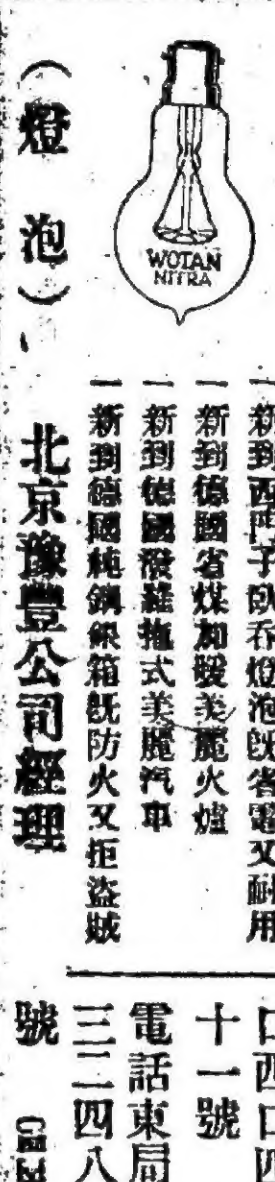 WOTAN
NITRA
一 新到西門子臥吞燈泡既省電又耐用
一 新到德國省煤加暖美麗火爐
一 新到德國潑羅拖式美麗汽車
一 新到德國純鋼銀箱既防火又拒盜賊
(燈泡)
北京豫豐公司經理
口西口四
十一號
電話東局
三二四八
號